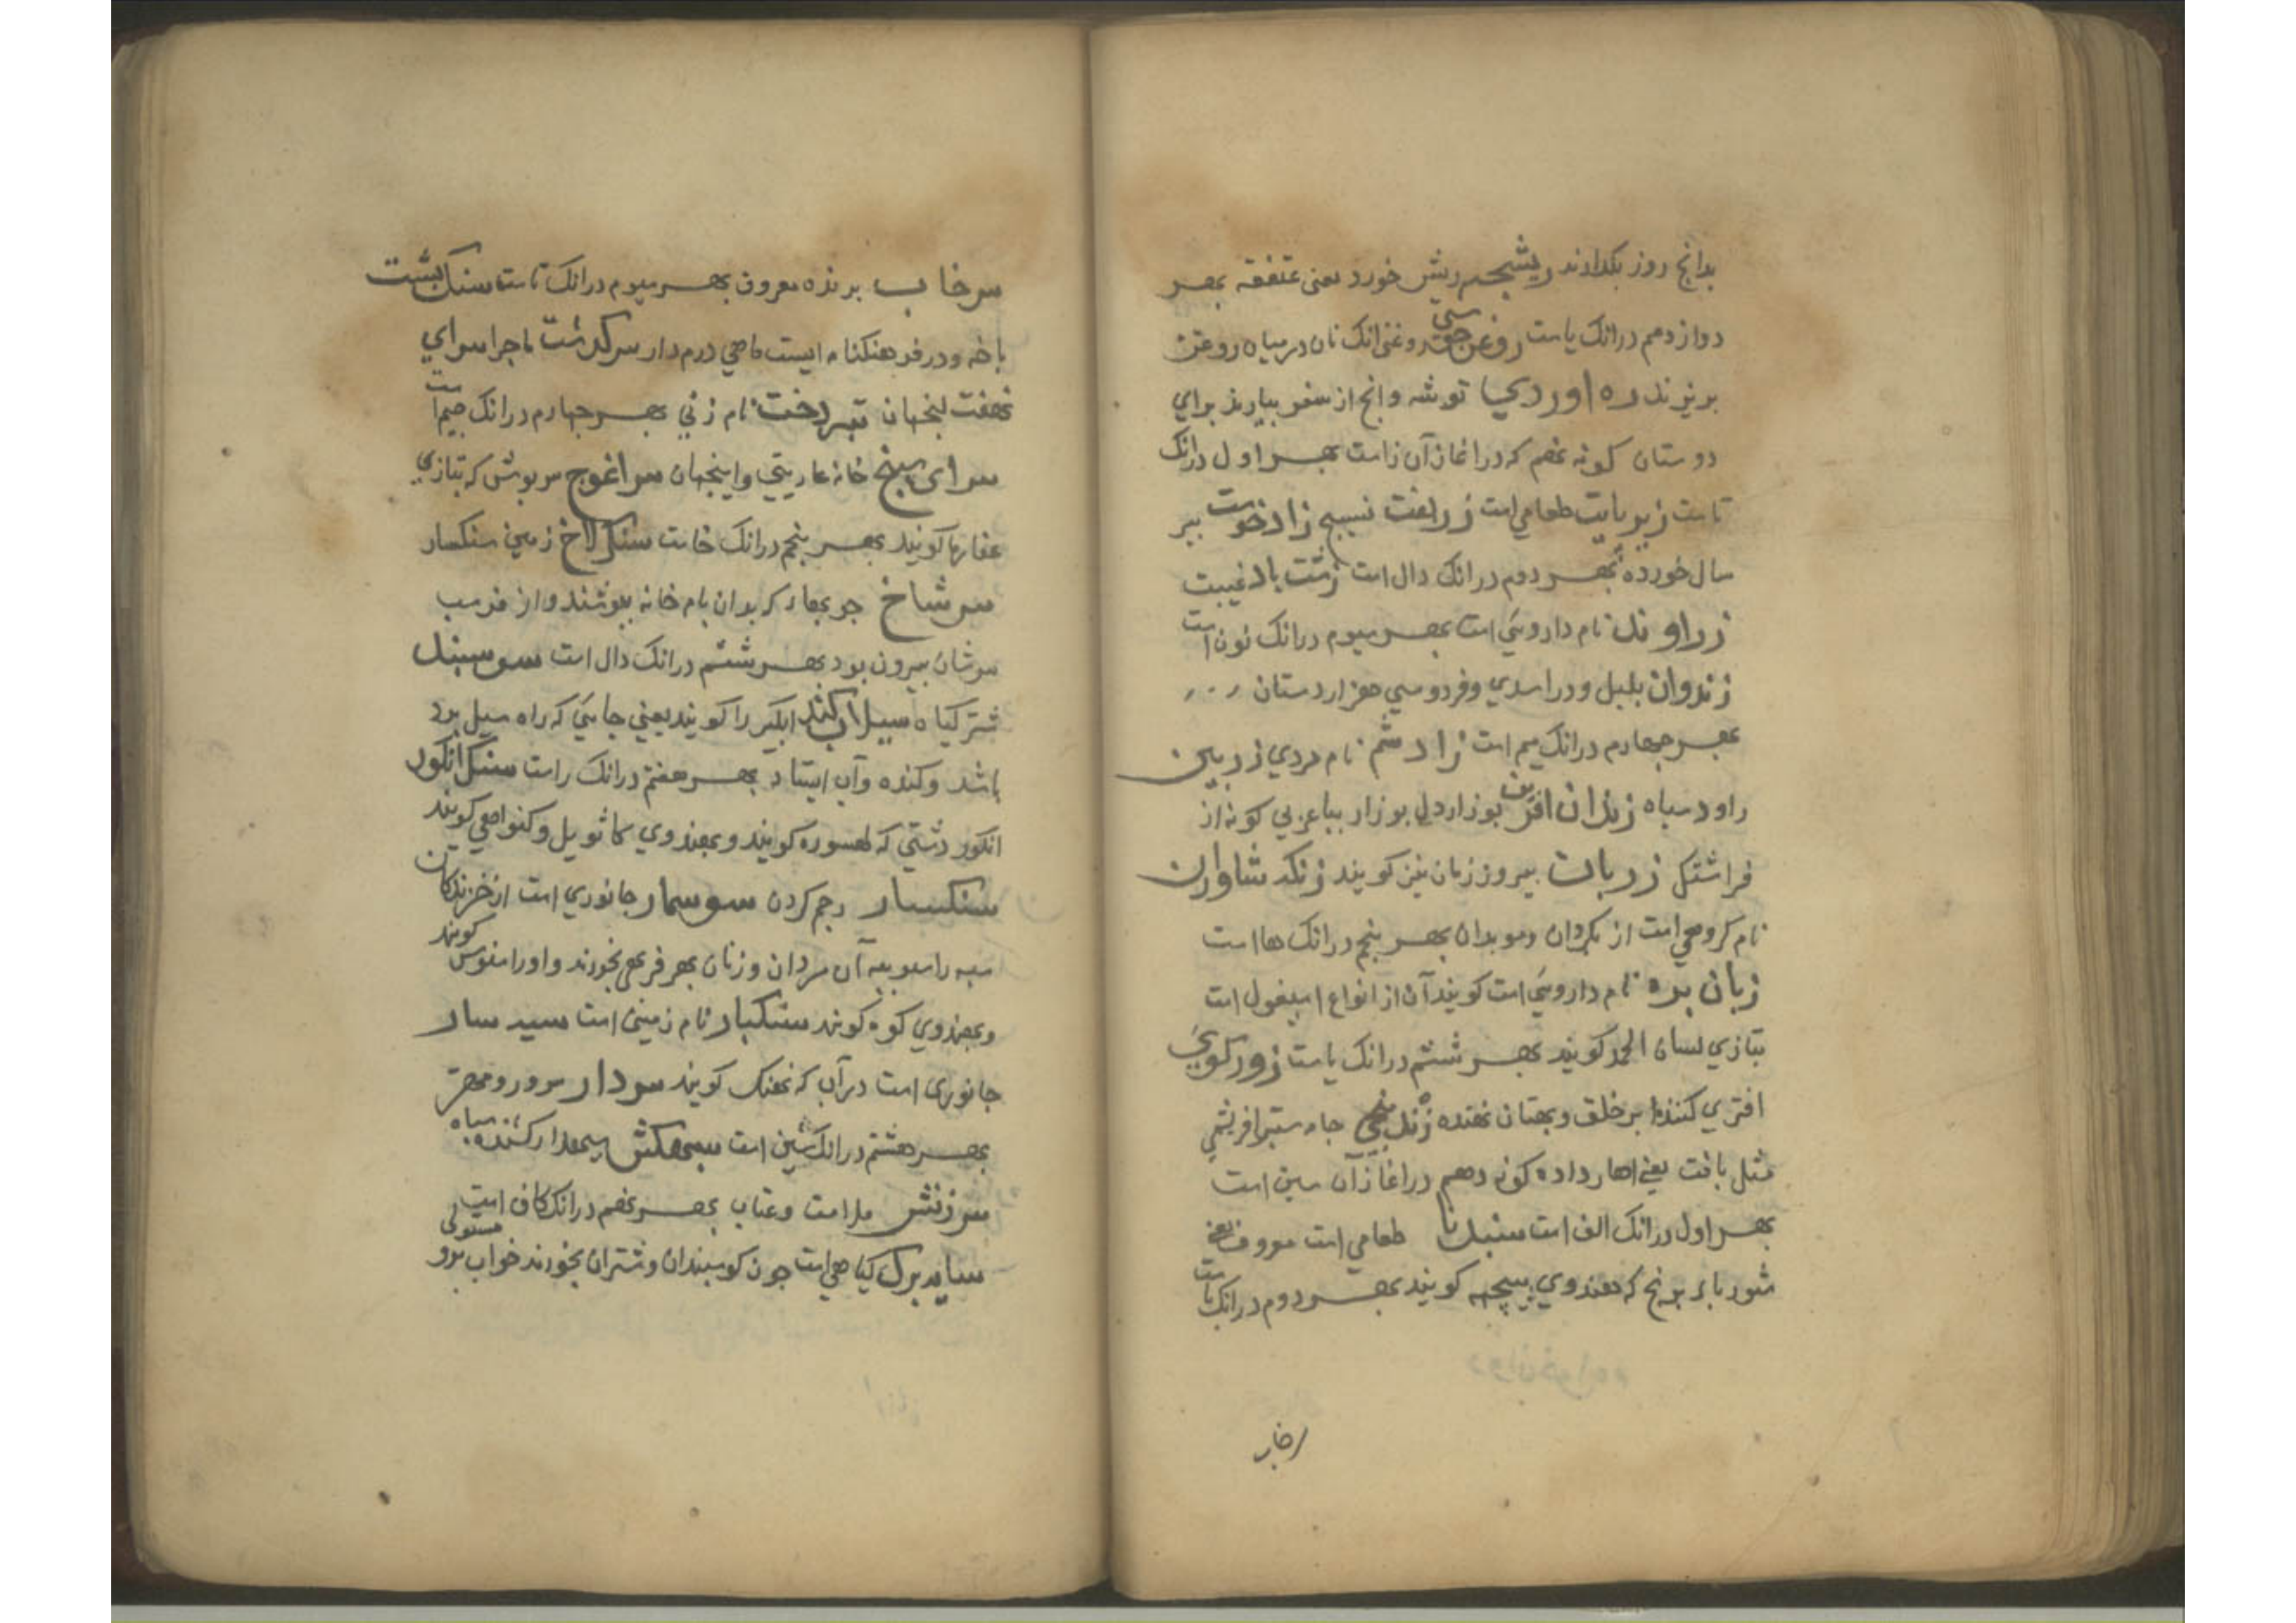 بدانچ روز بکدارند ریشچم ریش خورد یعنی عنفقه بهر
دوازدهم درانک یاست روغن جوشی روغنی انک نان در میاه روغن
بریزند ره اوردی توشه وانج از سفر بیارند برای
دوستان کونه نهم که دراغاز آن زاست بهر اول درانک
تاست زیربایت طعامی است زربفت نسیج زاد خوست پیر
سال خورده بهر دوم درانک دال است زشت یاد غیبت
زراوند نام داروئی است بهر سیوم درانک نون است
زندوان بلبل و در اسدی و فردوسی هزاردستان
بهر جهارم درانک میم است زادشم نام مردی زربین
راود سیاه زندان افریف بوزاردل بوزار بباعربی کونه از
فراشتک زربان پیر وزرمان نیز کویند زنکه شاوران
نام کروهی است از مردان وموبدان بهر پنجم درانک هااست
زبان بره نام داروئی است کویند آن از انواع اسپغول است
بتازی لسان الحمد کویند بهر ششم درانک یاست زورکوئی
افتری کننده بر خلق وبهتان نهنده زندپیچی جامه ستبر افریشمی
مثل بافت یعنی اهار داده کونه دهم دراغاز آن سین است
بهر اول درانک الف است سنبلنا طعامی است معروف یعنی
شوربا بر برنج که بهندوی پیچهه کویند بهر دوم درانک باست
سرخاب
سرخاب برنده معروف بهر سیوم درانک تاست سنک پشت
باخه ودر فرهنکنامه ایست ماهی درم دار سرکذشت ماجرا سرای
نهفت اینجهان تبر دخت نام زنی بهر جهارم درانک جیم است
سرای سپنج خانه عاریتی واینجهان سراغوج سربوش که بتازی
عفارها کویند بهر پنجم درانک خاست سنکلاخ زمین سنکسار
سرشاخ جوبهاء که بدان بام خانه بپوشند واز فرسب
سرشان بیرون بود بهر ششم درانک دال است سوسپند
شترکیاه سیلاب کند ابکیر را کویند یعنی جایی که راه سیل برد
باشد وکنده وآب ایستاد بهر هفتم درانک راست سنک انکور
انکور دشتی که طسوره کویند وبهندوی کاثویل وکنواهی کویند
سنکسار رجم کردن سوسمار جانوری است ازخزندکان
سیه راسو پیه آن مردان وزنان بهر فربهی بخورند واورا سوس کویند
وبهندوی کوه کویند سنکبار نام زمینی است سیدسار
جانوری است درآب که نهنک کویند سردار سرور ومهتر
بهر هشتم درانک شین است سیمکش سیمدار کشنده سیاه
سرزنش ملامت وعتاب بهر نهم درانک کاف است
سایه برک کیاهی است جون کوسبندان وشتران بخورند خواب برو مستولی